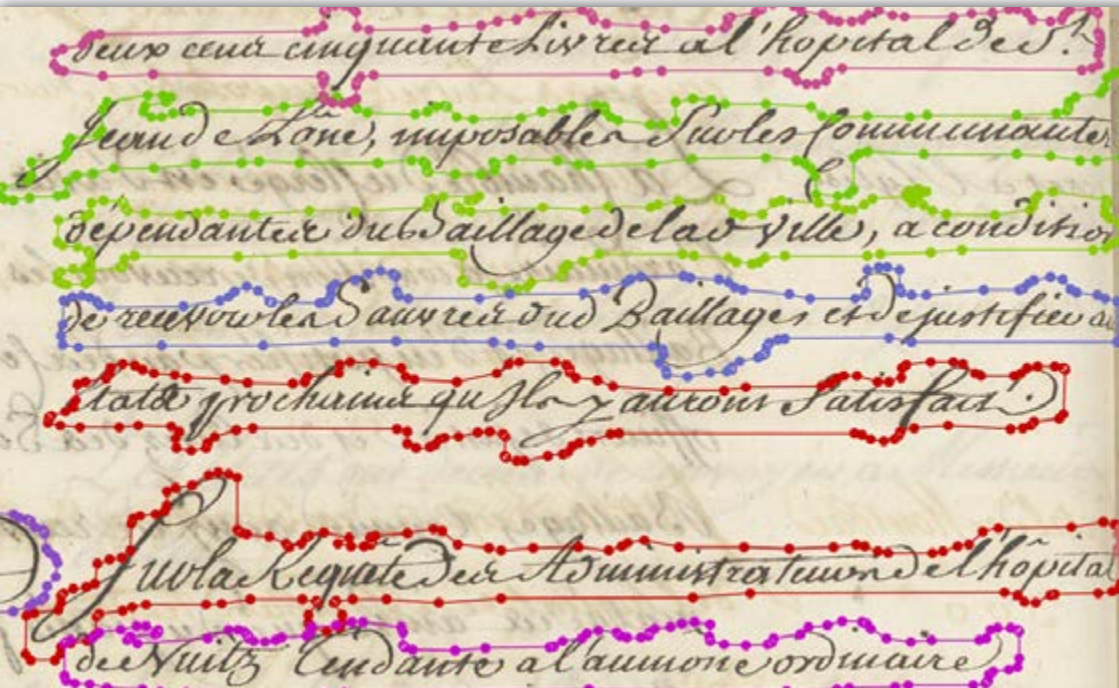 deux cens cinquante Livres a l'hopital de S.t
Jean de Lône, imposables Sur les Communautes
dépendantes du Baillage de lad ville, a condition
de recevoir les Pauvres dud Baillage et de justifier au
Etats prochains qu'Ils y auront Satisfait.
Sur la Requête des Administrateurs de l'hôpital
de Nuitz Tendante a l'aumone ordinaire